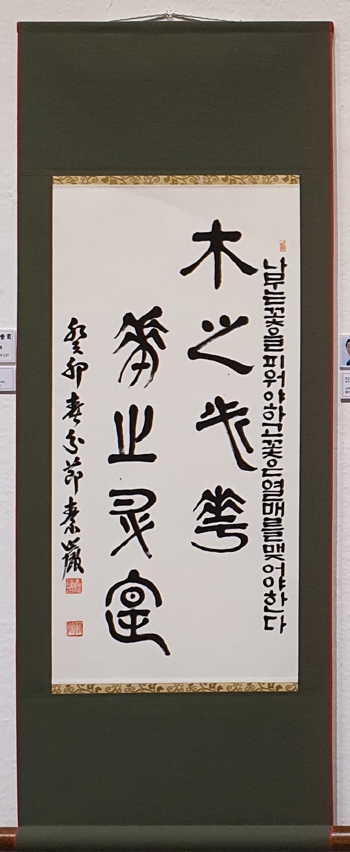 나무는꽃을피워야하고꽃은열매를맺어야한다
木之必華
華之
癸卯春分節素巖